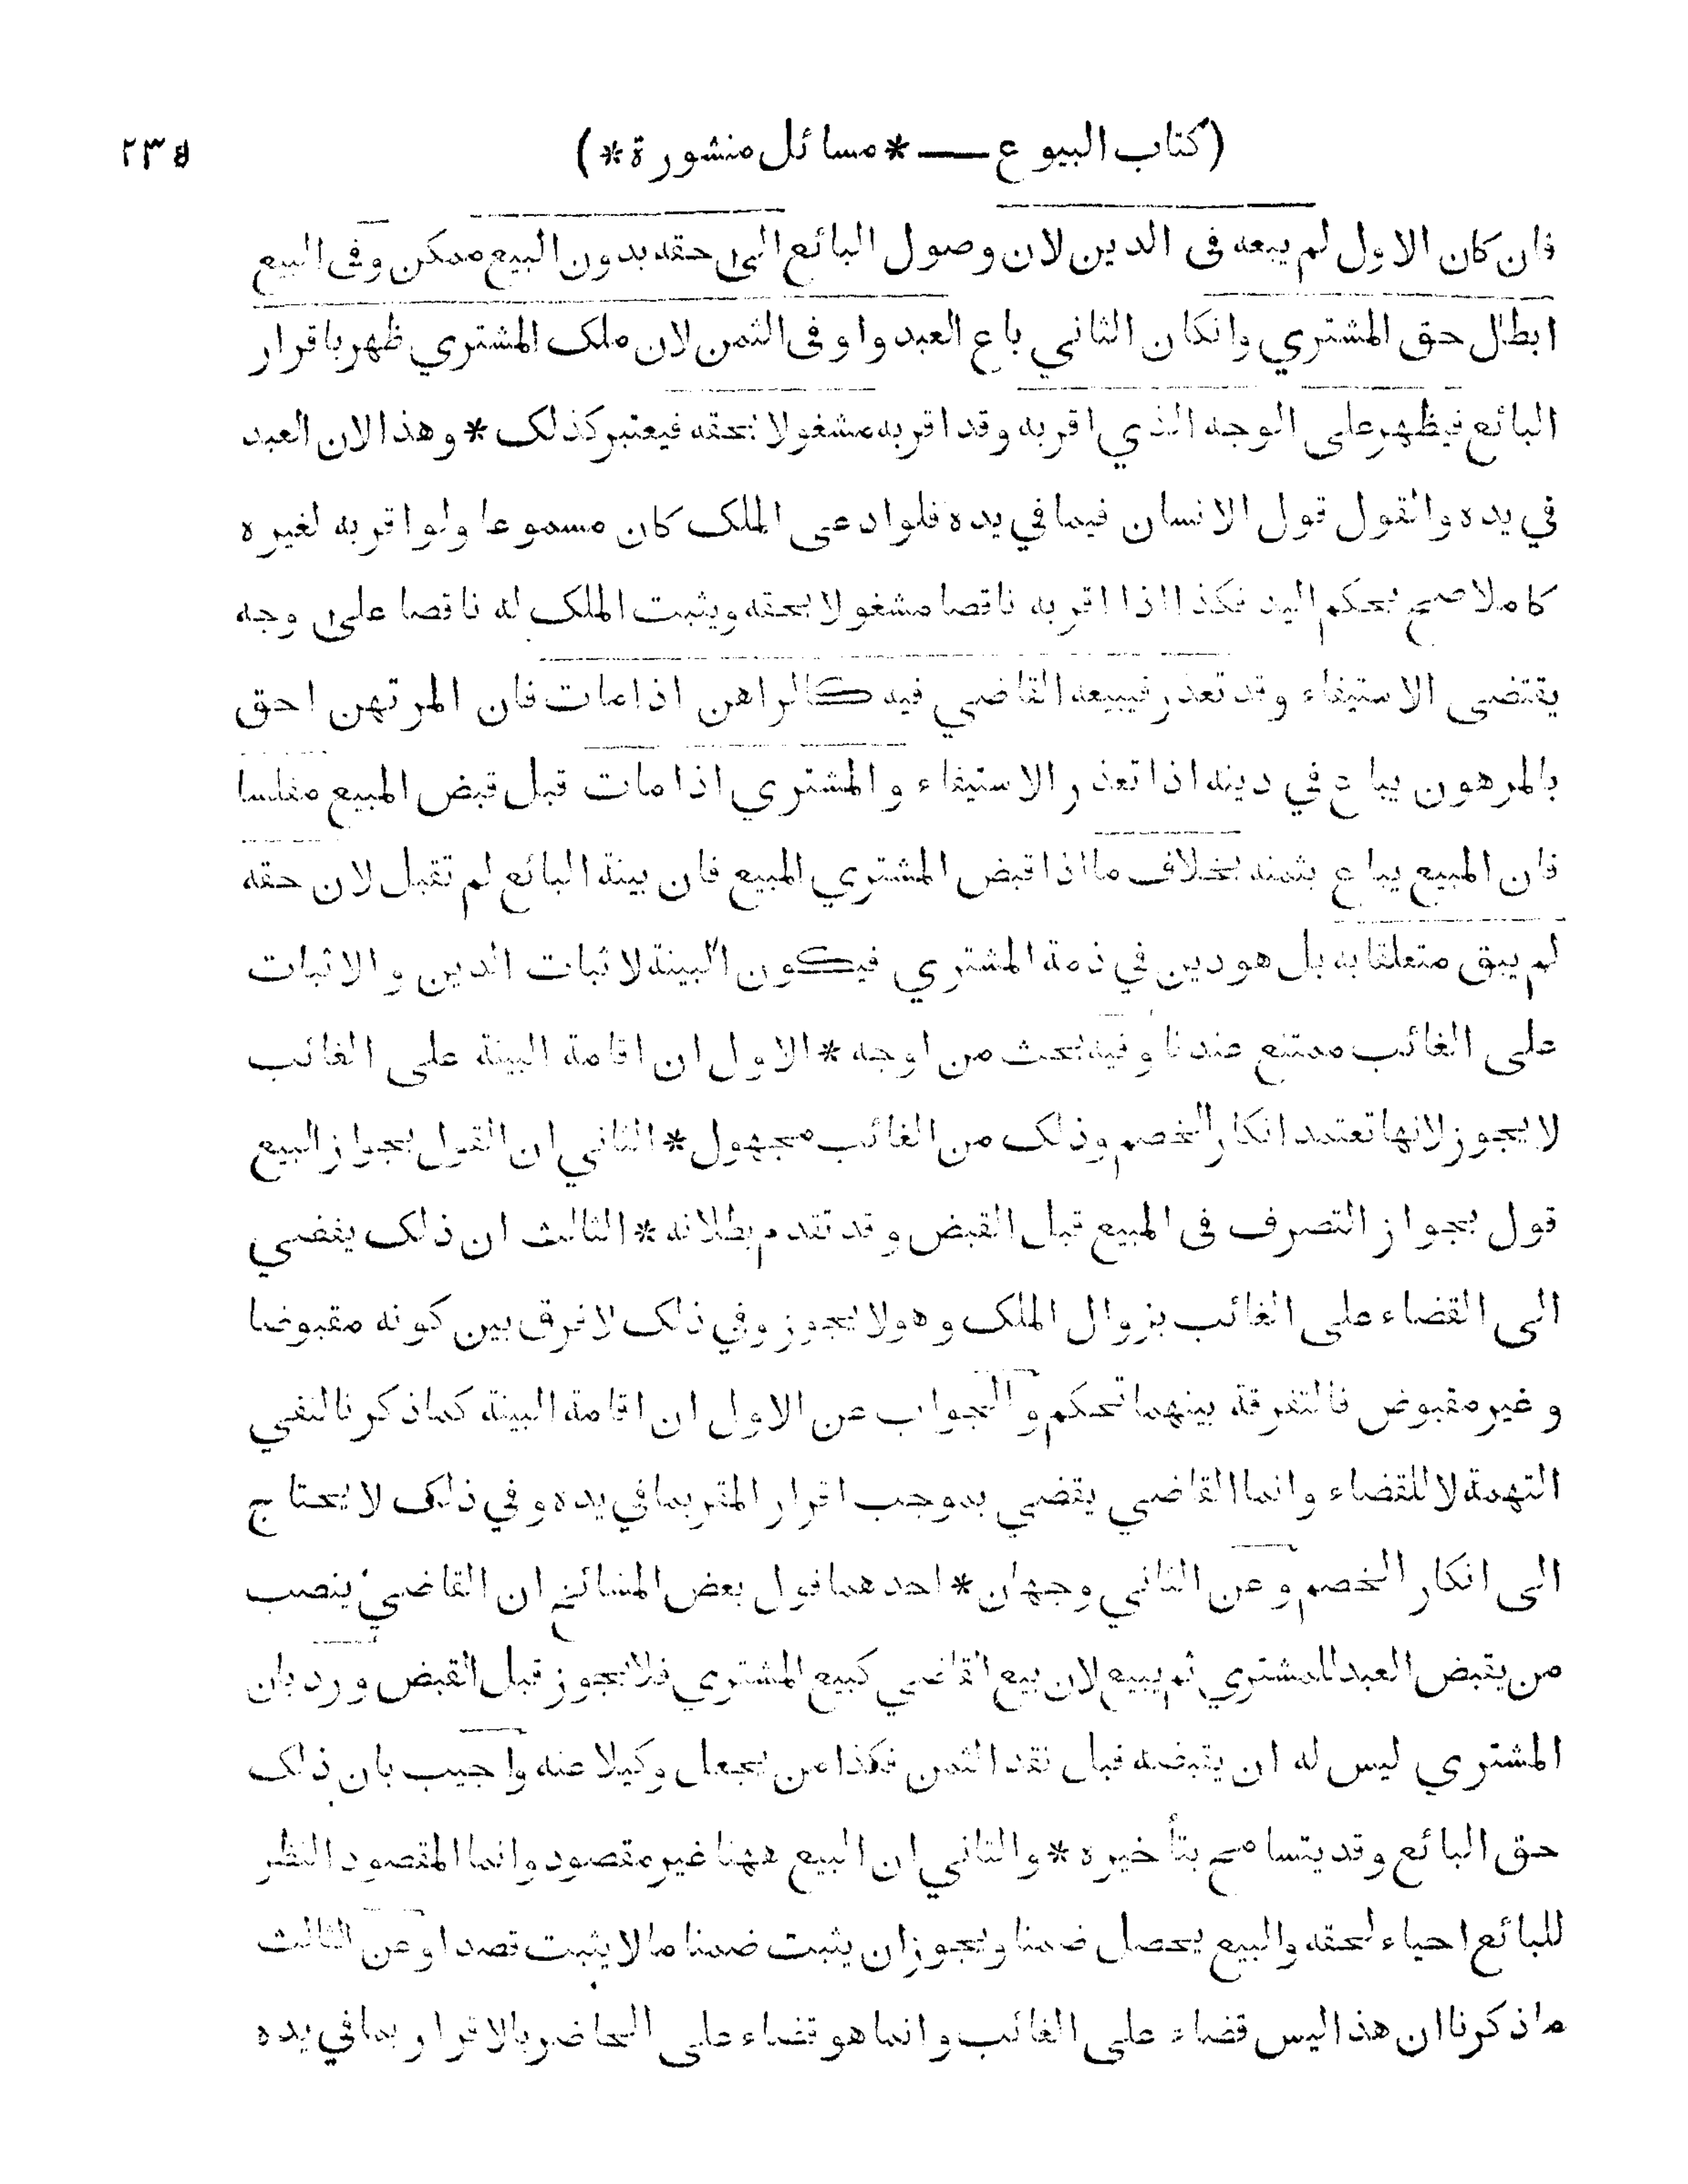 (كتاب البيوع — * مسائل منثورة *) ٢٣٥
فان كان الاول لم يبعه فى الدين لان وصول البائع الى حقه بدون البيع ممكن وفى البيع
ابطال حق المشتري وانكان الثاني باع العبد واوفى الثمن لان ملك المشتري ظهر باقرار
البائع فيظهر على الوجه الذي اقر به وقد اقر به مشغولا بحقه فيعتبر كذلك * وهذا لان العبد
في يده والقول قول الانسان فيما في يده فلو ادعى الملك كان مسموعا ولو اقر به لغيره
كاملا صح بحكم اليد فكذا اذا اقر به ناقصا مشغولا بحقه ويثبت الملك له ناقصا على وجه
يقتضى الاستيفاء وقد تعذر فيبيعه القاضي فيه كالراهن اذا مات فان المرتهن احق
بالمرهون يباع في دينه اذا تعذر الاستيفاء والمشتري اذا مات قبل قبض المبيع مفلسا
فان المبيع يباع بثمنه بخلاف ما اذا قبض المشتري المبيع فان بينة البائع لم تقبل لان حقه
لم يبق متعلقا به بل هو دين في ذمة المشتري فيكون البينة لاثبات الدين والاثبات
على الغائب ممتنع عندنا وفيه بحث من اوجه * الاول ان اقامة البينة على الغائب
لا يجوز لانها تعتمد انكار الخصم وذلك من الغائب مجهول * الثاني ان القول بجواز البيع
قول بجواز التصرف فى المبيع قبل القبض وقد تقدم بطلانه * الثالث ان ذلك يفضي
الى القضاء على الغائب بزوال الملك وهو لا يجوز وفي ذلك لا فرق بين كونه مقبوضا
وغير مقبوض فالتفرقة بينهما تحكم والجواب عن الاول ان اقامة البينة كما ذكرنا لنفي
التهمة لا للقضاء وانما القاضي يقضي بموجب اقرار المقر بما في يده وفي ذلك لا يحتاج
الى انكار الخصم وعن الثاني وجهان * احدهما قول بعض المشائخ ان القاضي ينصب
من يقبض العبد للمشتري ثم يبيع لان بيع القاضي كبيع المشتري فلا يجوز قبل القبض ورد بان
المشتري ليس له ان يقبضه قبل نقد الثمن فكذا من يجعل وكيلا عنه واجيب بان ذلك
حق البائع وقد يتسامح بتأخيره * والثاني ان البيع ههنا غير مقصود وانما المقصود النظر
للبائع احياء لحقه والبيع يحصل ضمنا ويجوز ان يثبت ضمنا ما لا يثبت قصدا وعن الثالث
ما ذكرنا ان هذا ليس قضاء على الغائب وانما هو قضاء على الحاضر بالاقرار بما في يده